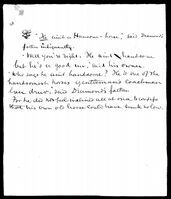 "He ain't a Hansom-horse," said Diamond's
father indignantly.
"Well you're right. He ain't handsome
but he's a good un," said his owner.
"Who says he ain't handsome? He is one of the
handsomest horses gentleman's coachman
ever druv," said Diamond's father.
For he did
his own old horse could have sunk so low.